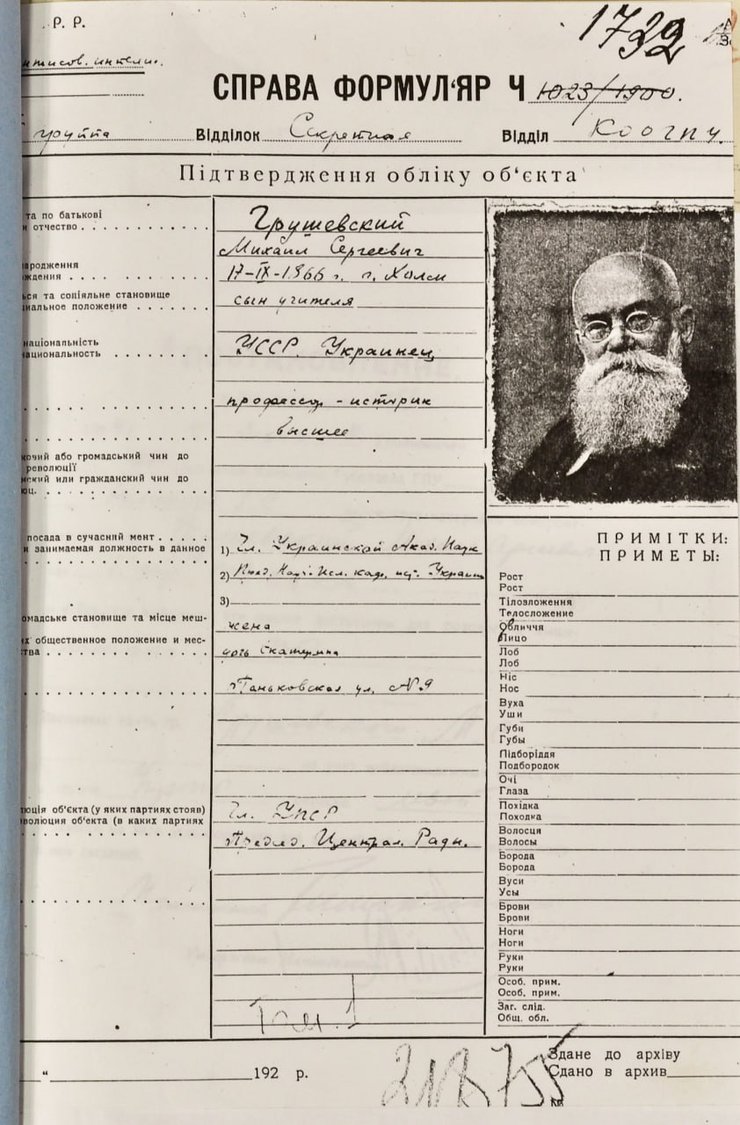 Р. Р.
1732
СПРАВА ФОРМУЛ'ЯР Ч 1023/1900.
группа Відділок Секретная Відділ КООГПУ.
Підтвердження обліку об'єкта
та по батькові
и отчество
Грушевский
Михаил Сергеевич
17-IX-1866 г. г. Холм
сын учителя
ься та соціяльне становище
циальное положение
національність
национальность
УССР. Украинец
профессор - историк
высшее
очий або громадський чин до
революції
нский или гражданский чин до
юц.
посада в сучасний мент
и занимаемая должность в данное
1) Чл. Украинской Акад. Наук
2)
3)
омадське становище та місце меш-
их общественное положение и мес-
ства
жена
дочь Екатерина
Паньковская ул. № 9
юція об'єкта (у яких партиях стояв)
волюция объекта (в каких партиях
Чл. УПСР
Председ. Централ. Рады.
Том. 1
"
192 р.
ПРИМІТКИ:
ПРИМЕТЫ:
Рост
Рост
Тілозложення
Телосложение
Обличчя
Лицо
Лоб
Лоб
Ніс
Нос
Вуха
Уши
Губи
Губы
Підборіддя
Подбородок
Очі
Глаза
Похідка
Походка
Волосся
Волосы
Борода
Борода
Вуси
Усы
Брови
Брови
Ноги
Ноги
Руки
Руки
Особ. прим.
Особ. прим.
Заг. слід.
Общ. обл.
Здане до архіву
Сдано в архив